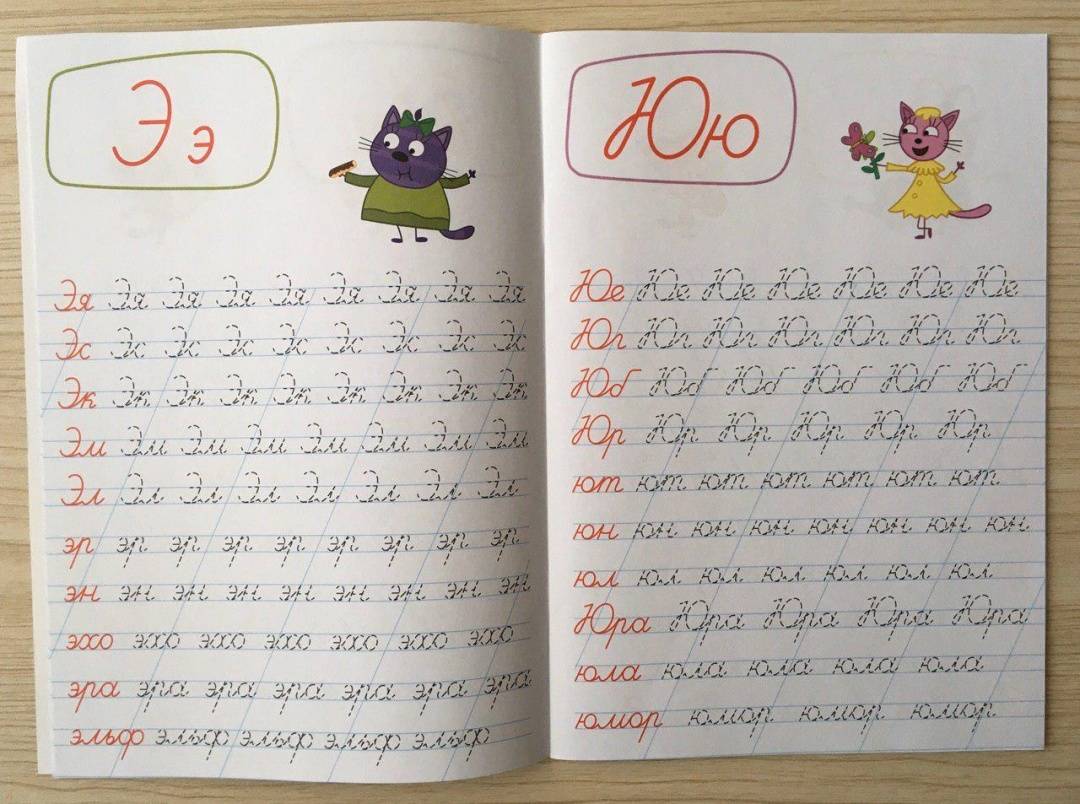 Э э
Эя Эя Эя Эя Эя Эя Эя Эя Эя
Эс Эс Эс Эс Эс Эс Эс Эс Эс
Эк Эк Эк Эк Эк Эк Эк Эк Эк
Эм Эм Эм Эм Эм Эм Эм Эм
Эл Эл Эл Эл Эл Эл Эл Эл
эр эр эр эр эр эр эр эр эр
эн эн эн эн эн эн эн эн эн
эхо эхо эхо эхо эхо эхо эхо
эра эра эра эра эра эра эра
эльф эльф эльф эльф эльф
Ю ю
Юе Юе Юе Юе Юе Юе Юе
Юг Юг Юг Юг Юг Юг Юг
Юб Юб Юб Юб Юб Юб
Юр Юр Юр Юр Юр Юр
ют ют ют ют ют ют ют
юн юн юн юн юн юн юн юн
юл юл юл юл юл юл юл
Юра Юра Юра Юра Юра
юла юла юла юла юла
юмор юмор юмор юмор